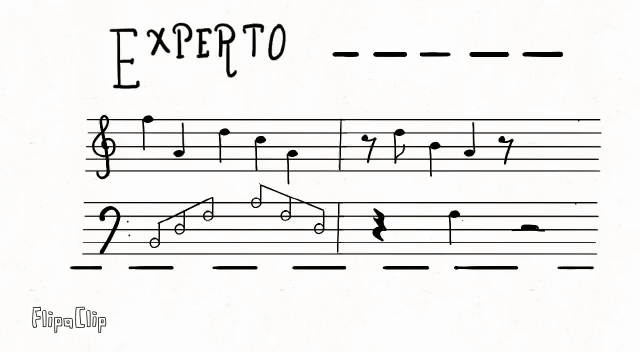 EXPERTO
FlipaClip